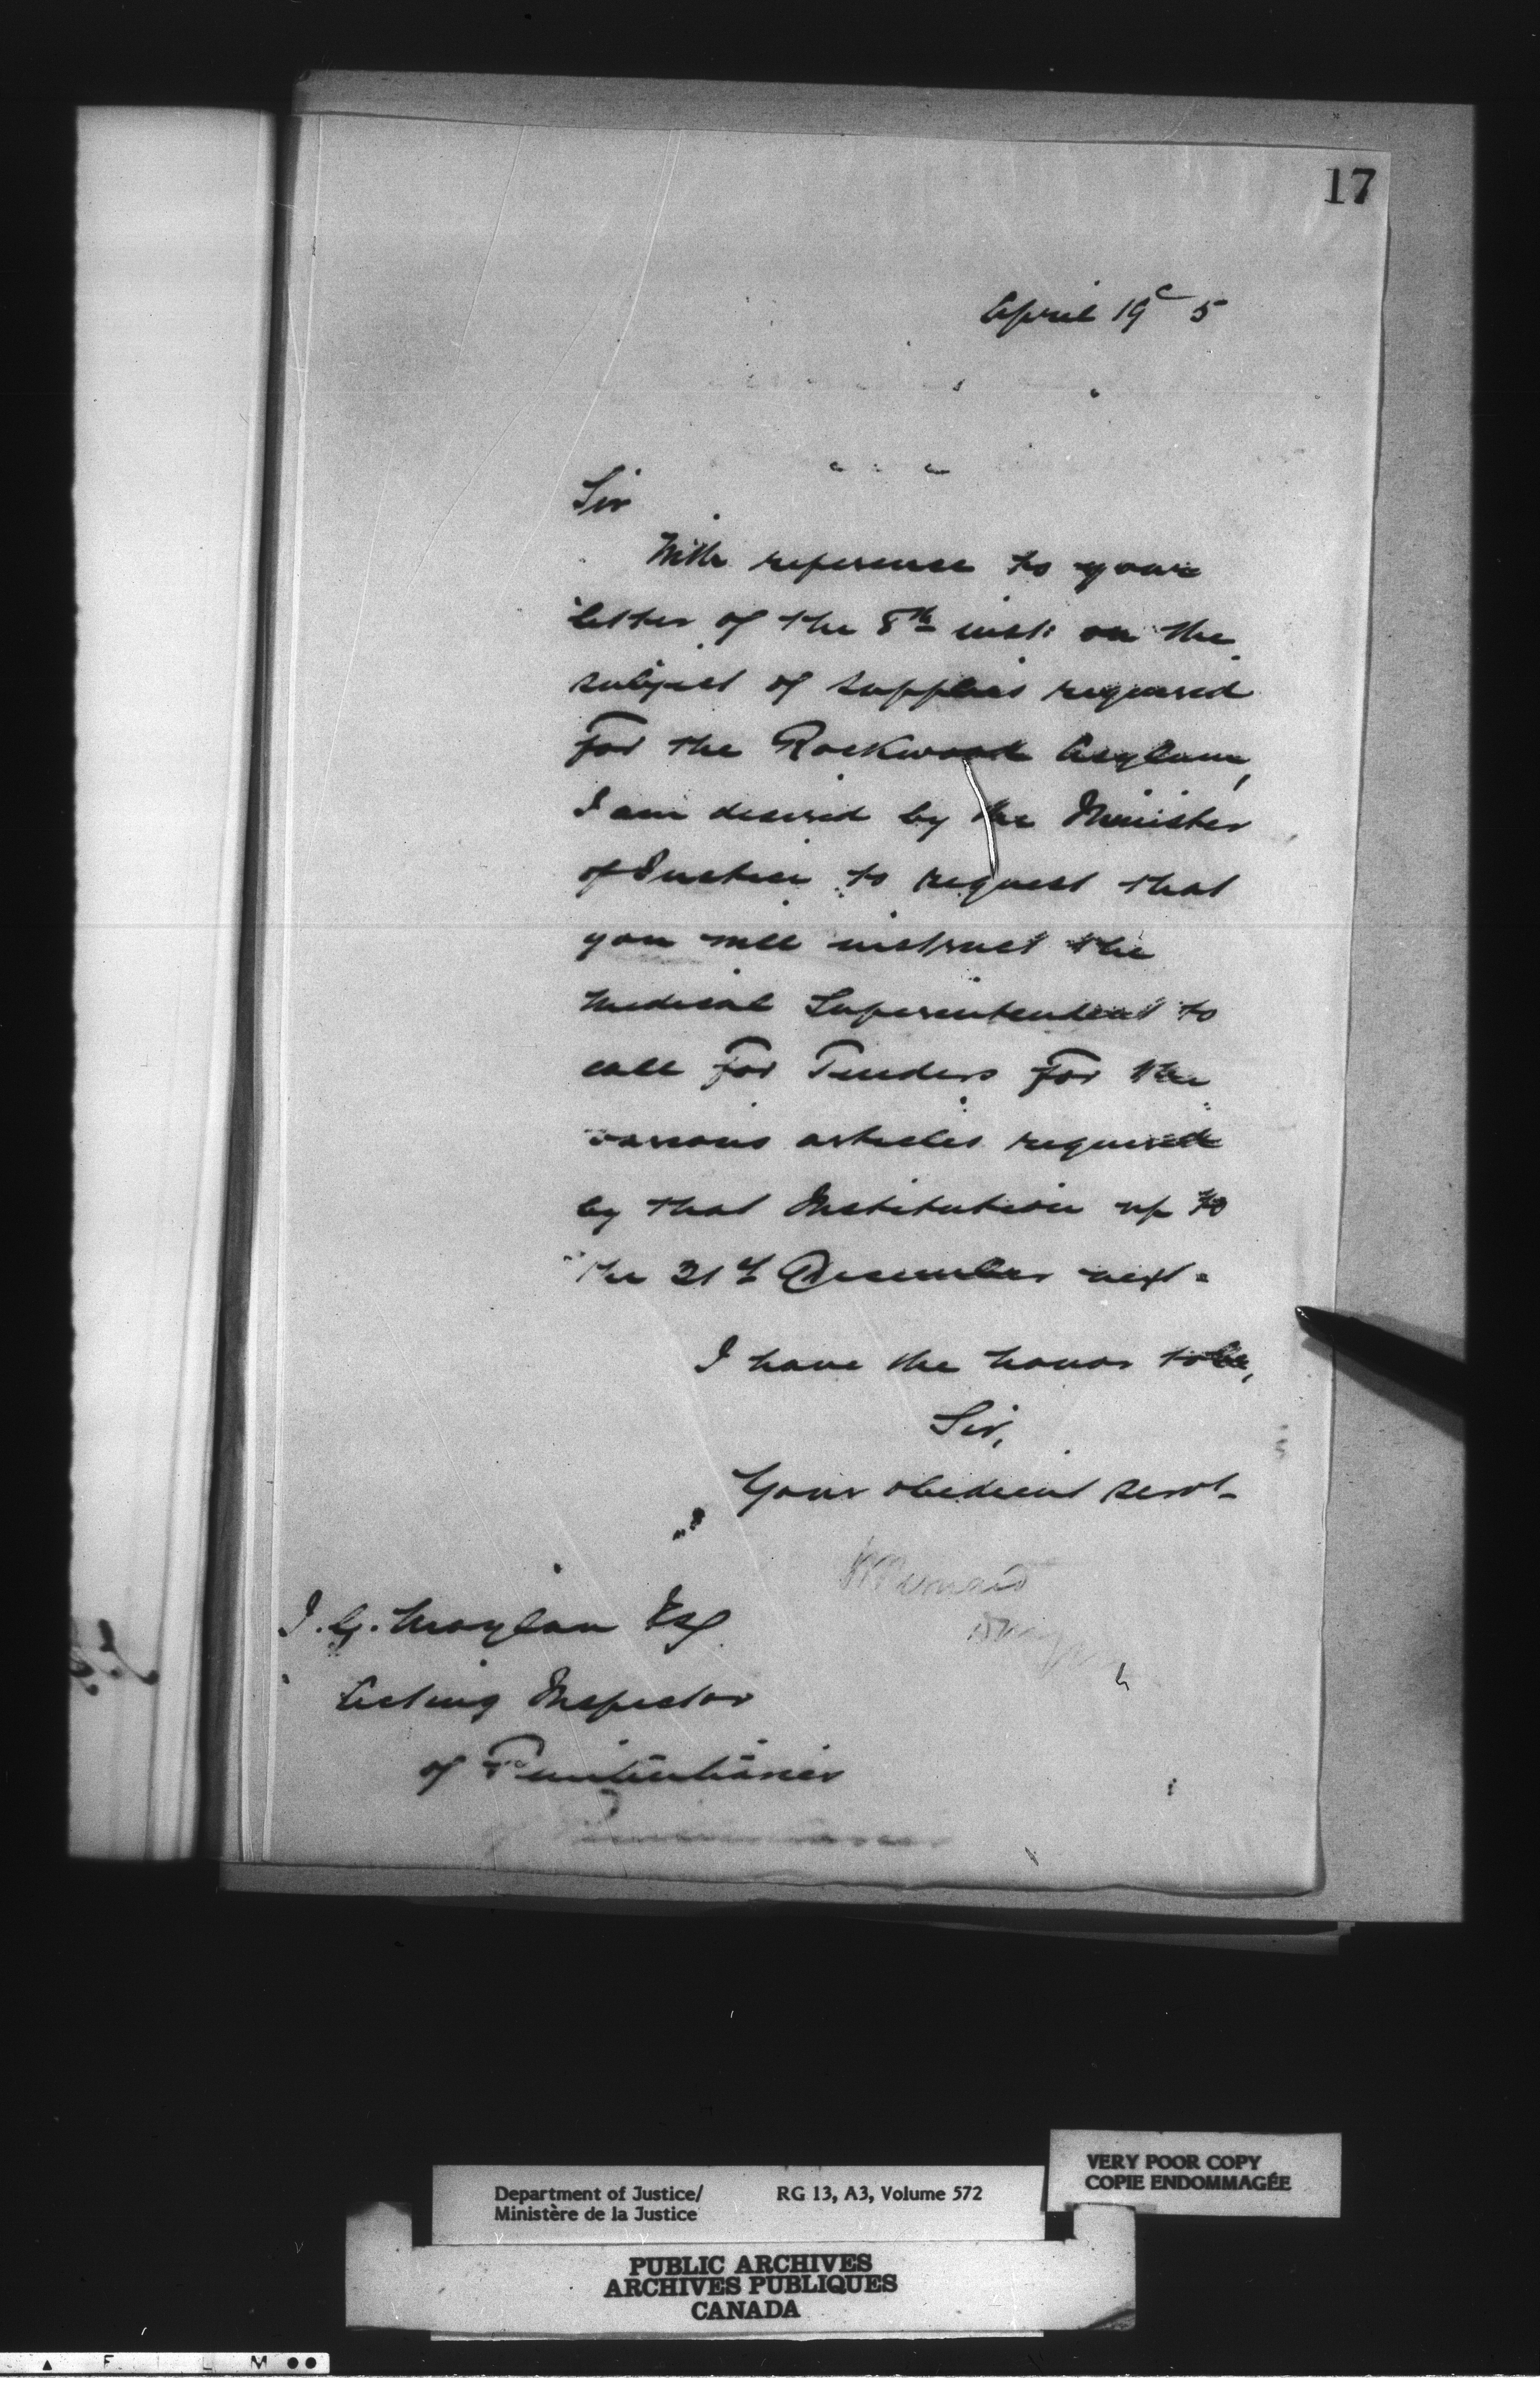 17
April 19th 5
Sir
With reference to your
letter of the 8th inst: on the
subject of supplies required
for the Rockwood Asylum,
I am desired by the Minister
of Justice to request that
you will instruct the
Medical Superintendent to
call for Tenders for the
various articles required
by that Institution up to
the 31st December next.
I have the honor to be,
Sir,
Your obedient servt
H Bernard
J. G. Moylan Esq
Acting Inspector
of Penitentiaries
VERY POOR COPY
COPIE ENDOMMAGÉE
Department of Justice/ RG 13, A3, Volume 572
Ministère de la Justice
PUBLIC ARCHIVES
ARCHIVES PUBLIQUES
CANADA
F I L M